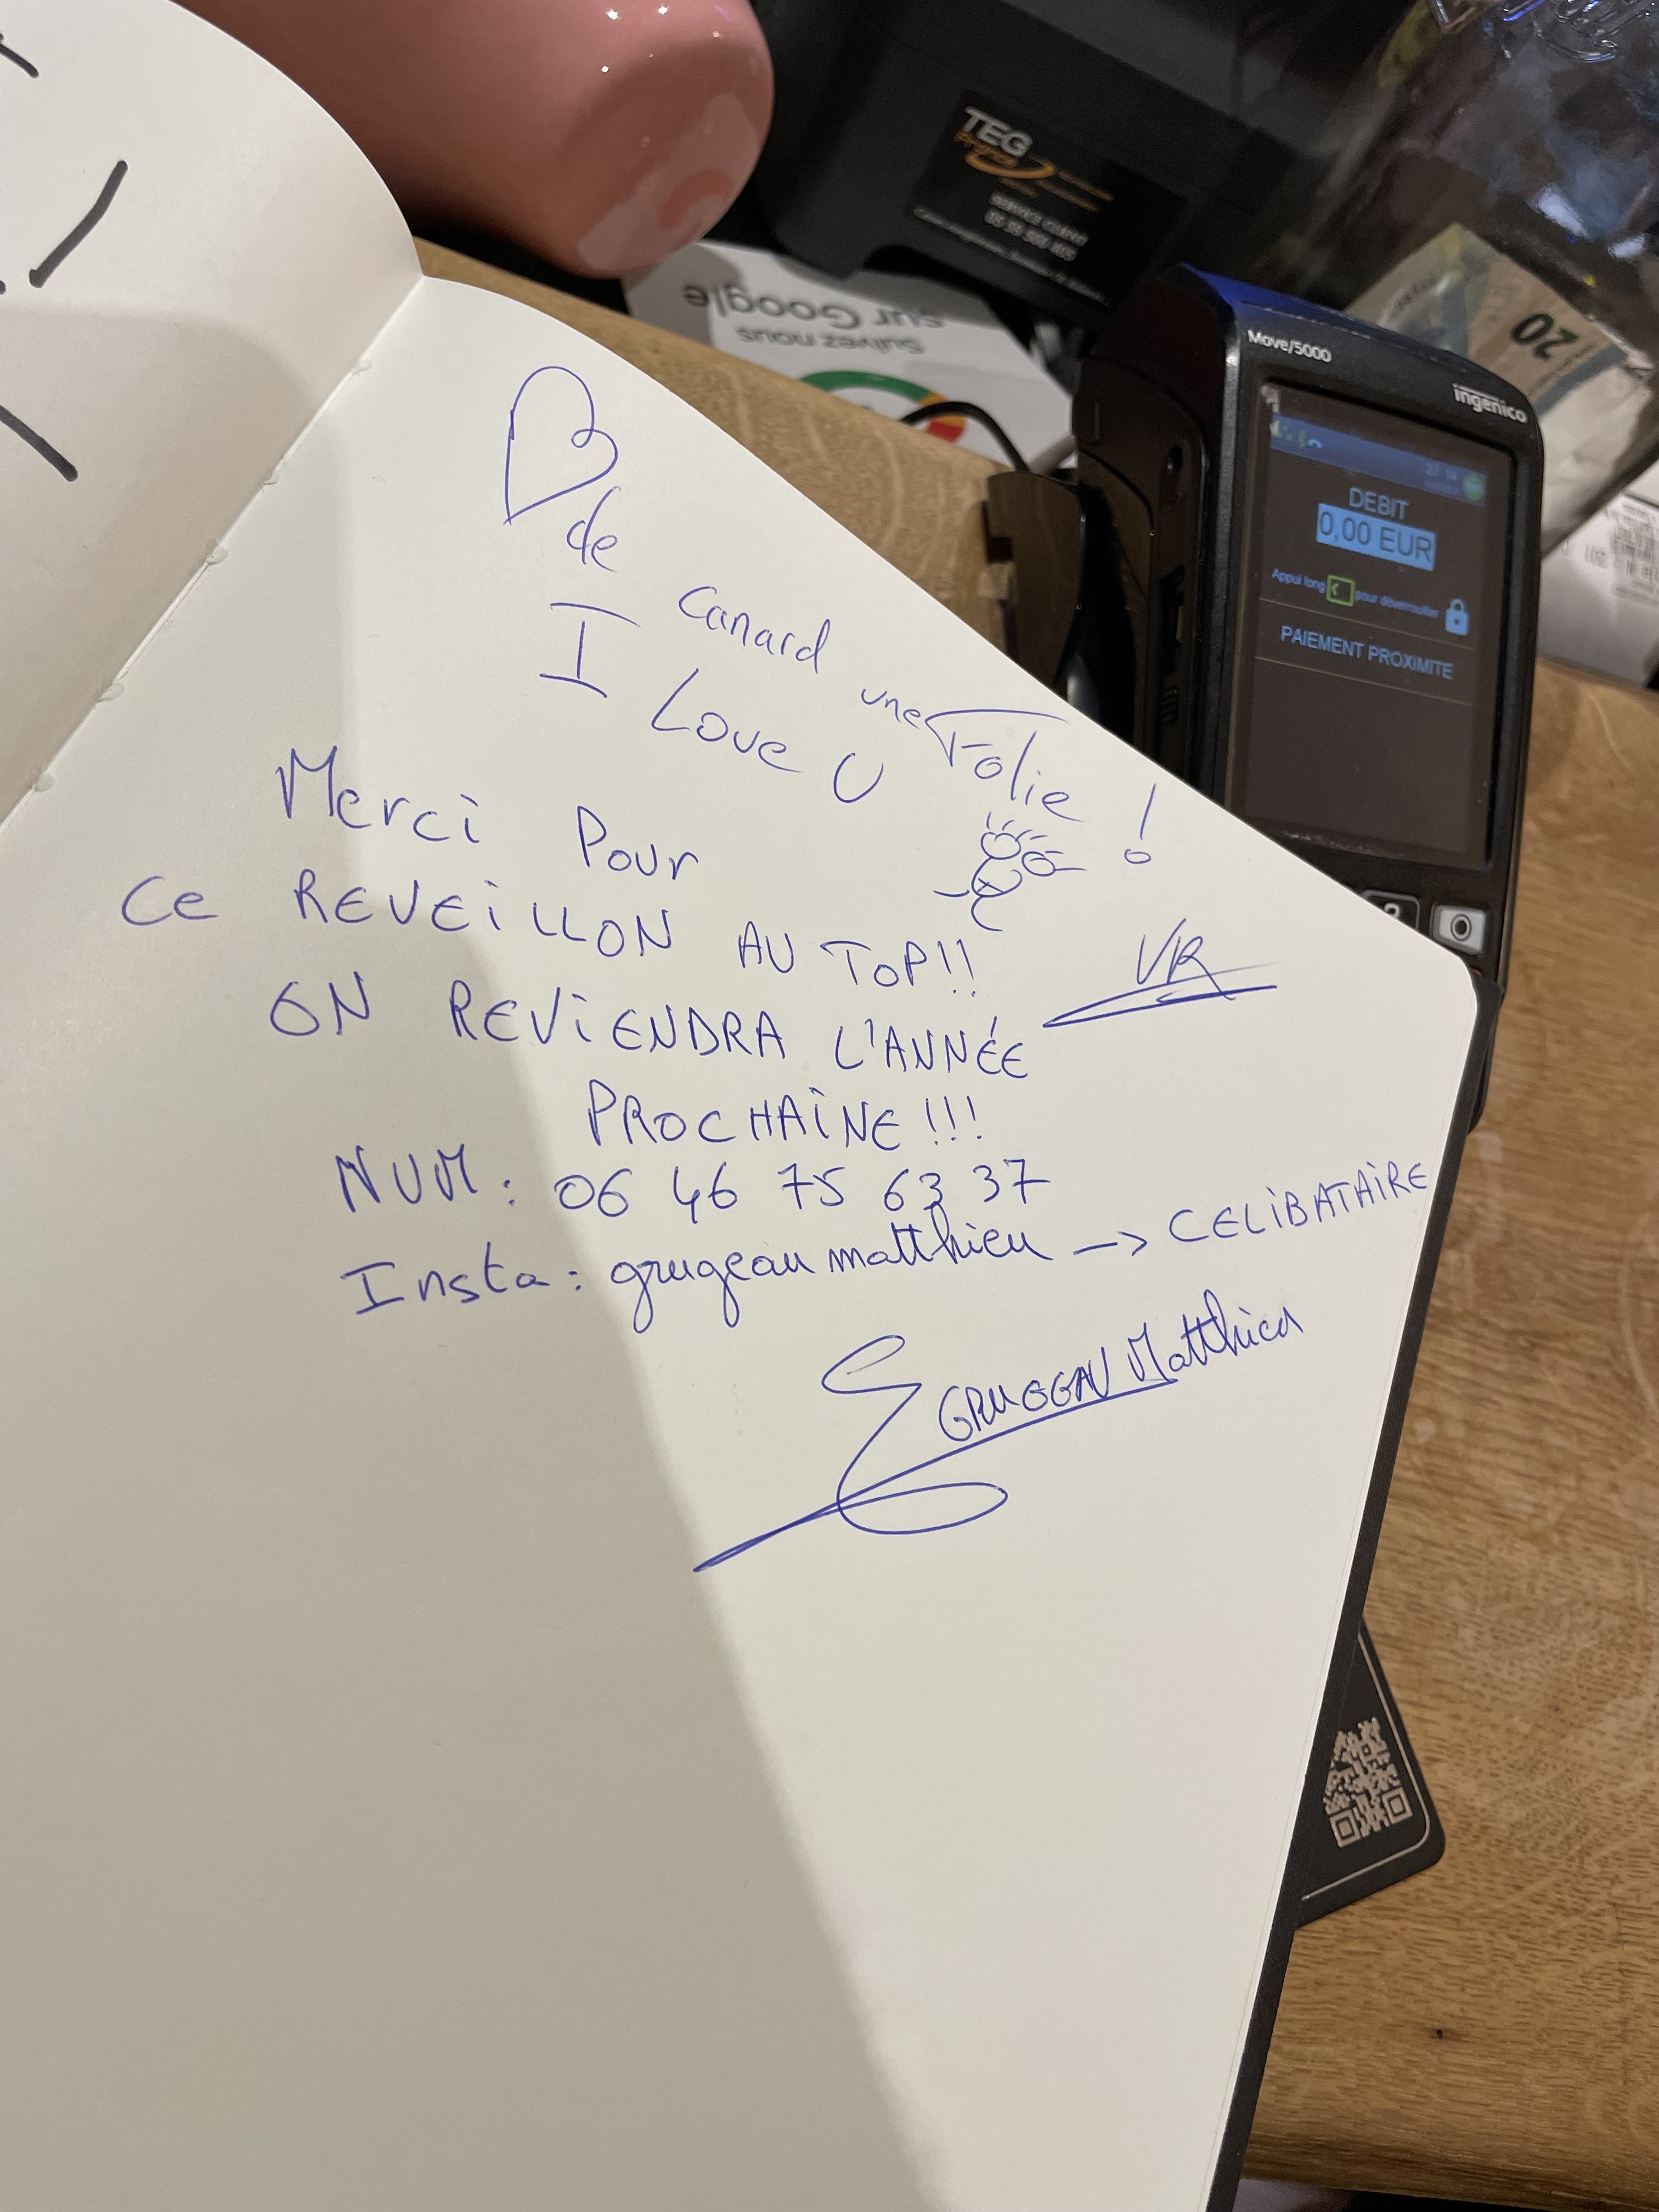 TEG
France
SERVICE CLIENT
Suivez nous
sur Google
20
Move/5000
ingenico
DEBIT
0,00 EUR
Appui long
pour déverrouiller
PAIEMENT PROXIMITE
de canard une Folie !
I Love U
Merci Pour
Ce REVEiLLON AU TOP!!
VR
ON REViENDRA L'ANNÉE
PROCHAiNE !!!
NUM: 06 46 75 63 37
Insta: grugeau matthieu -> CELiBATAiRE
GRUGEAU Matthieu